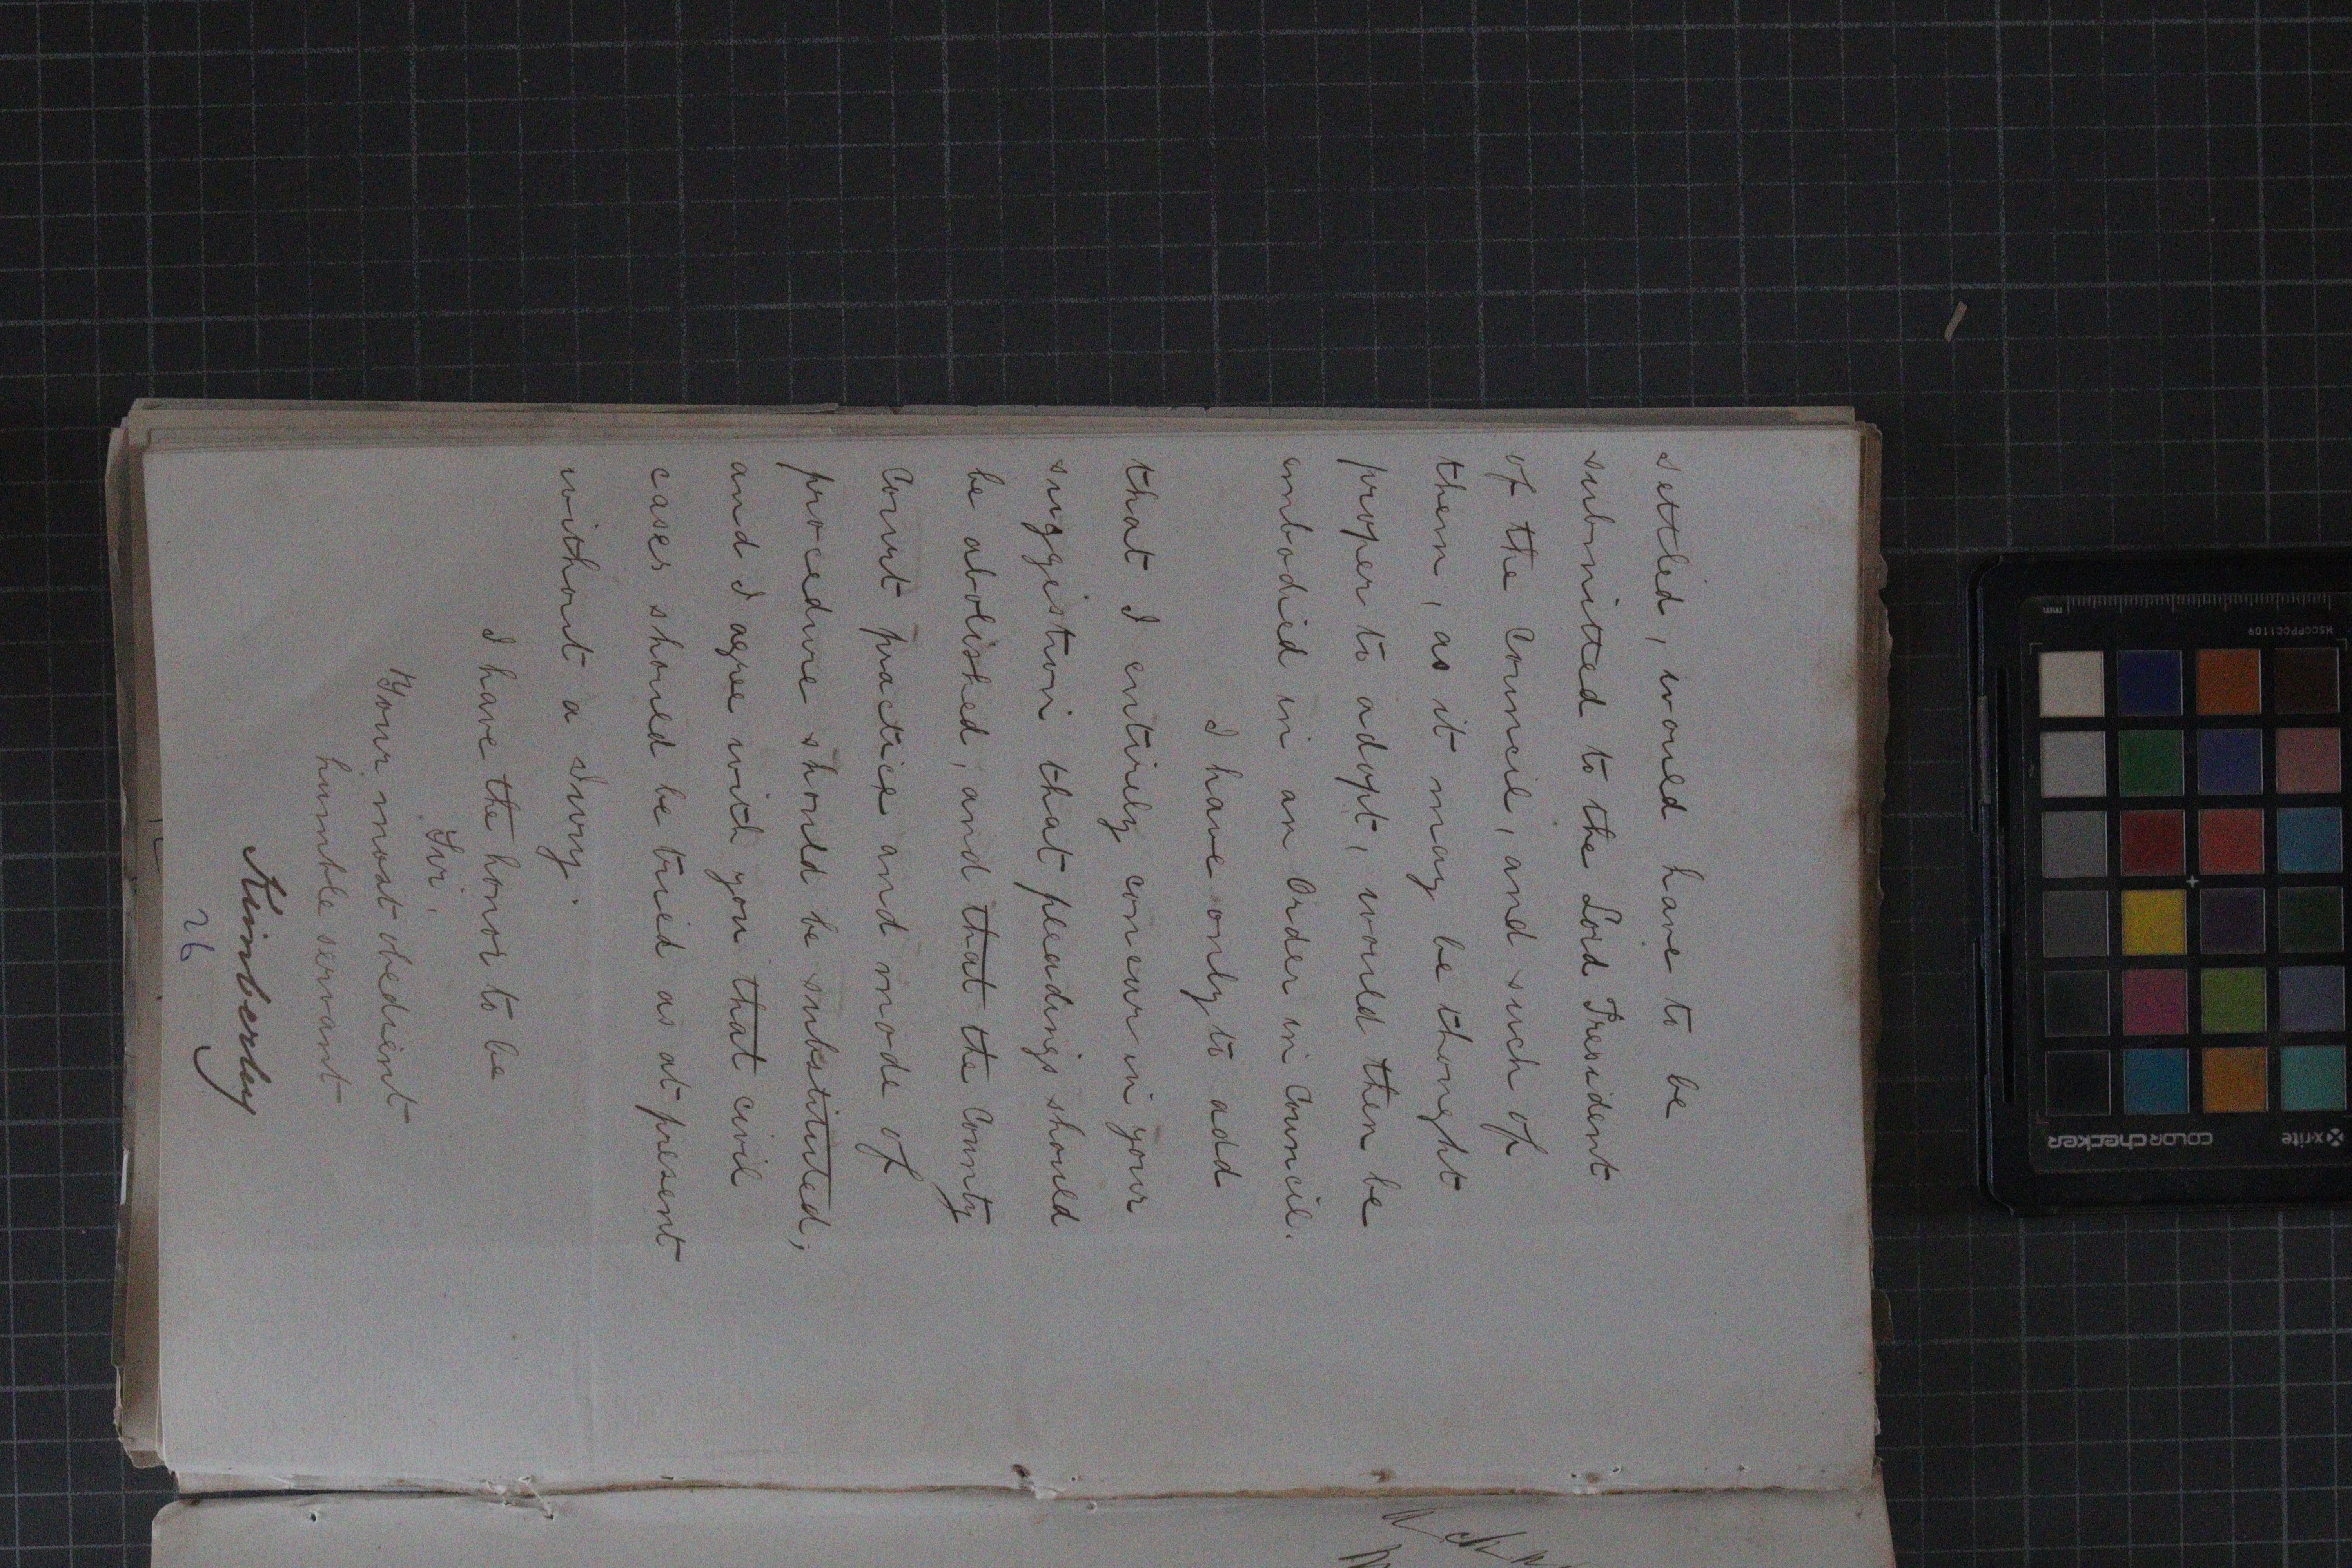 settled, would have to be
submitted to the Lord President
of the Council, and such of
them, as it may be thought
proper to adopt, would then be
embodied in an Order in Council.
I have only to add
that I entirely concur in your
suggestion that pleadings should
be abolished, and that the County
Court practice and mode of
procedure should be substituted;
and I agree with you that civil
cases should be tried as at present
without a Jury.
I have the honor to be
Sir,
Your most obedient
humble servant
Kimberley
26
mm
MSCCPPCC1109
x-rite
colorchecker